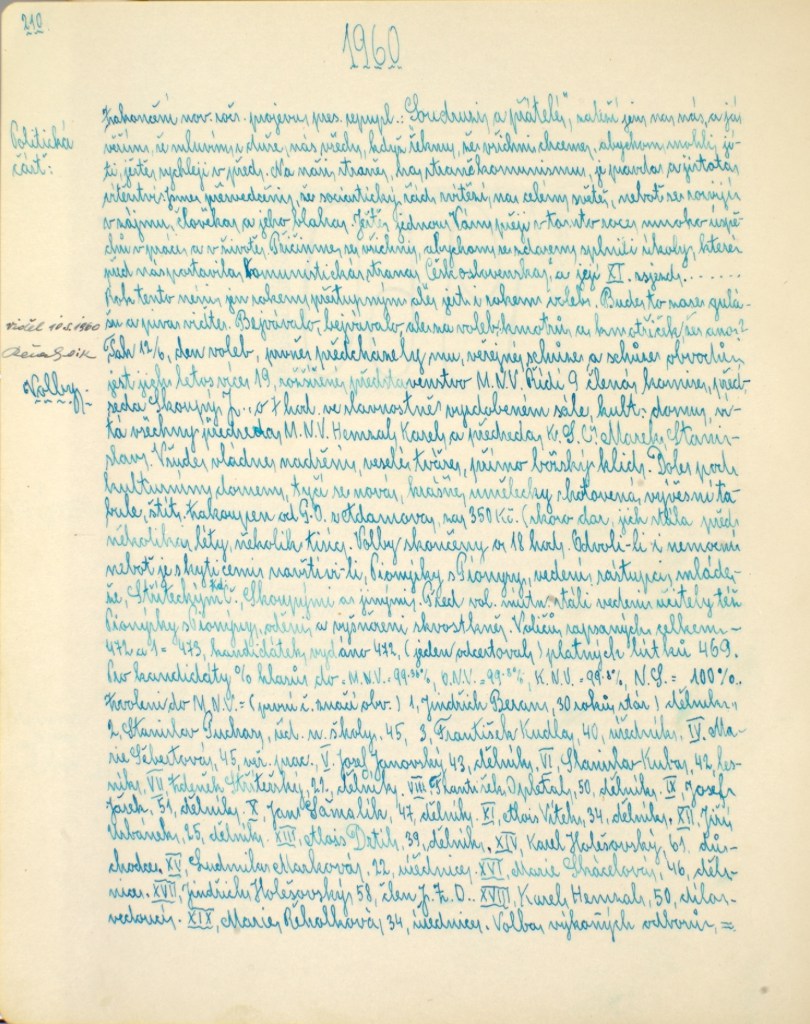 210.
1960
Politická
část:
Zakončení nov. roč. projevu pres. republ.: "Soudruzi a přátelé", záleží jen na nás, a já
věřím, že mluvím z duše, nás všech, když řeknu, že všichni chceme, abychom mohli jí-
ti, ještě rychleji v před. Na naší straně, na straně komunismu, je pravda a jistota
vítězství. Jsme přesvědčeni, že socialistický řád, zvítězí na celém světě, neboť se rozvíjí
v zájmu, člověka a jeho blaha. Ještě jednou Vám přeji v tomto roce mnoho úspě-
chů v práci a v životě. Přičiňme se všichni, abychom se zdarem splnili úkoly, které
před nás postavila Komunistická strana Československa, a její XI. sjezd.......
Rok tento není jen rokem přestupným ale, jest i rokem voleb. Bude to zase gulá-
šu a piva vidíte. Bejvávalo, bejvávalo, ale na volebk kmotrů a kmotřiček že ano?
viděl 10.2.1960
12/6, den voleb, prvně předcházely mu, veřejné schůze a schůze obvodů,
jest jich letos více 19, rozšířené představenstvo M.N.V. Řídí 9 členná komise, před-
Volby.
seda Skoupý J., o 7 hod. ve slavnostně vyzdobeném sále, kult. domu, ví-
tá všechny předseda M.N.V. Hemzal Karel a předseda Marek Stani-
slav. Všude vládne nadšení, veselé tváře, přímo božský klid. Dole pod
kulturním domem, tyčí se nová, krásná, umělecky zhotovená, vývěsní ta-
bule, štít. Zakoupen od z Adamova, za 350 Kč. (skoro dar, jich stála před
několika léty, několik tisíc). Volby skončeny o 18 hod. Odvoli-li i nemocní
neboť je s kyticemi navštívi-li, Pionýrky s Pionýry, vedeni, zástupci mláde-
že, Skoupými a jinými. Před vol. místn. stáli vedeni učitely též
Pionýrky s Pionýry, oděni a vyšňořeni skvostně. Voličů zapsaných celkem -
472 a 1 = 473, kandidátek vydáno 472, (jeden odcestoval) platných lístků 469.
Pro kandidáty % hlasů do = M.N.V. = 99·36%, O.N.V. = 99·8%, K.N.V. = 99·8%, N.S. = 100%..
Zvoleni do M.N.V. = (první č. značí obv.) 1, Jindřich Beran, 30 roků, stár) dělník.
2, Stanislav Puchar, řed. n. školy, 45, 3, František Kudla, 40, úředník. IV. Ma-
rie Šébertová, 45, prac. V. Josef Janovský 43, dělník. VI, Stanislav Kuba, 42, les-
ník. VII Zdeněk Střítežský, 29, dělník. VIII František Opletal, 50, dělník. IX, Josef
51, dělník. X, Jan 47, dělník. XI, Alois Vítek, 34, dělník. XII, Jiří
Urbánek, 25, dělník. XIII, Alois 39, dělník. XIV, Karel Holešovský, 61, dů-
chodce. XV, Ludmila Marková, 22, úřednice. XVI, Marie Skácelová, 46, děl-
nice. XVII, Jindřich Holešovský, 58, člen J.Z.D.. XVIII, Karel Hemzal, 50, dílo-
vedoucí. XIX, Marie Řehořková, 34, úřednice. Volba výkonných odborů, =